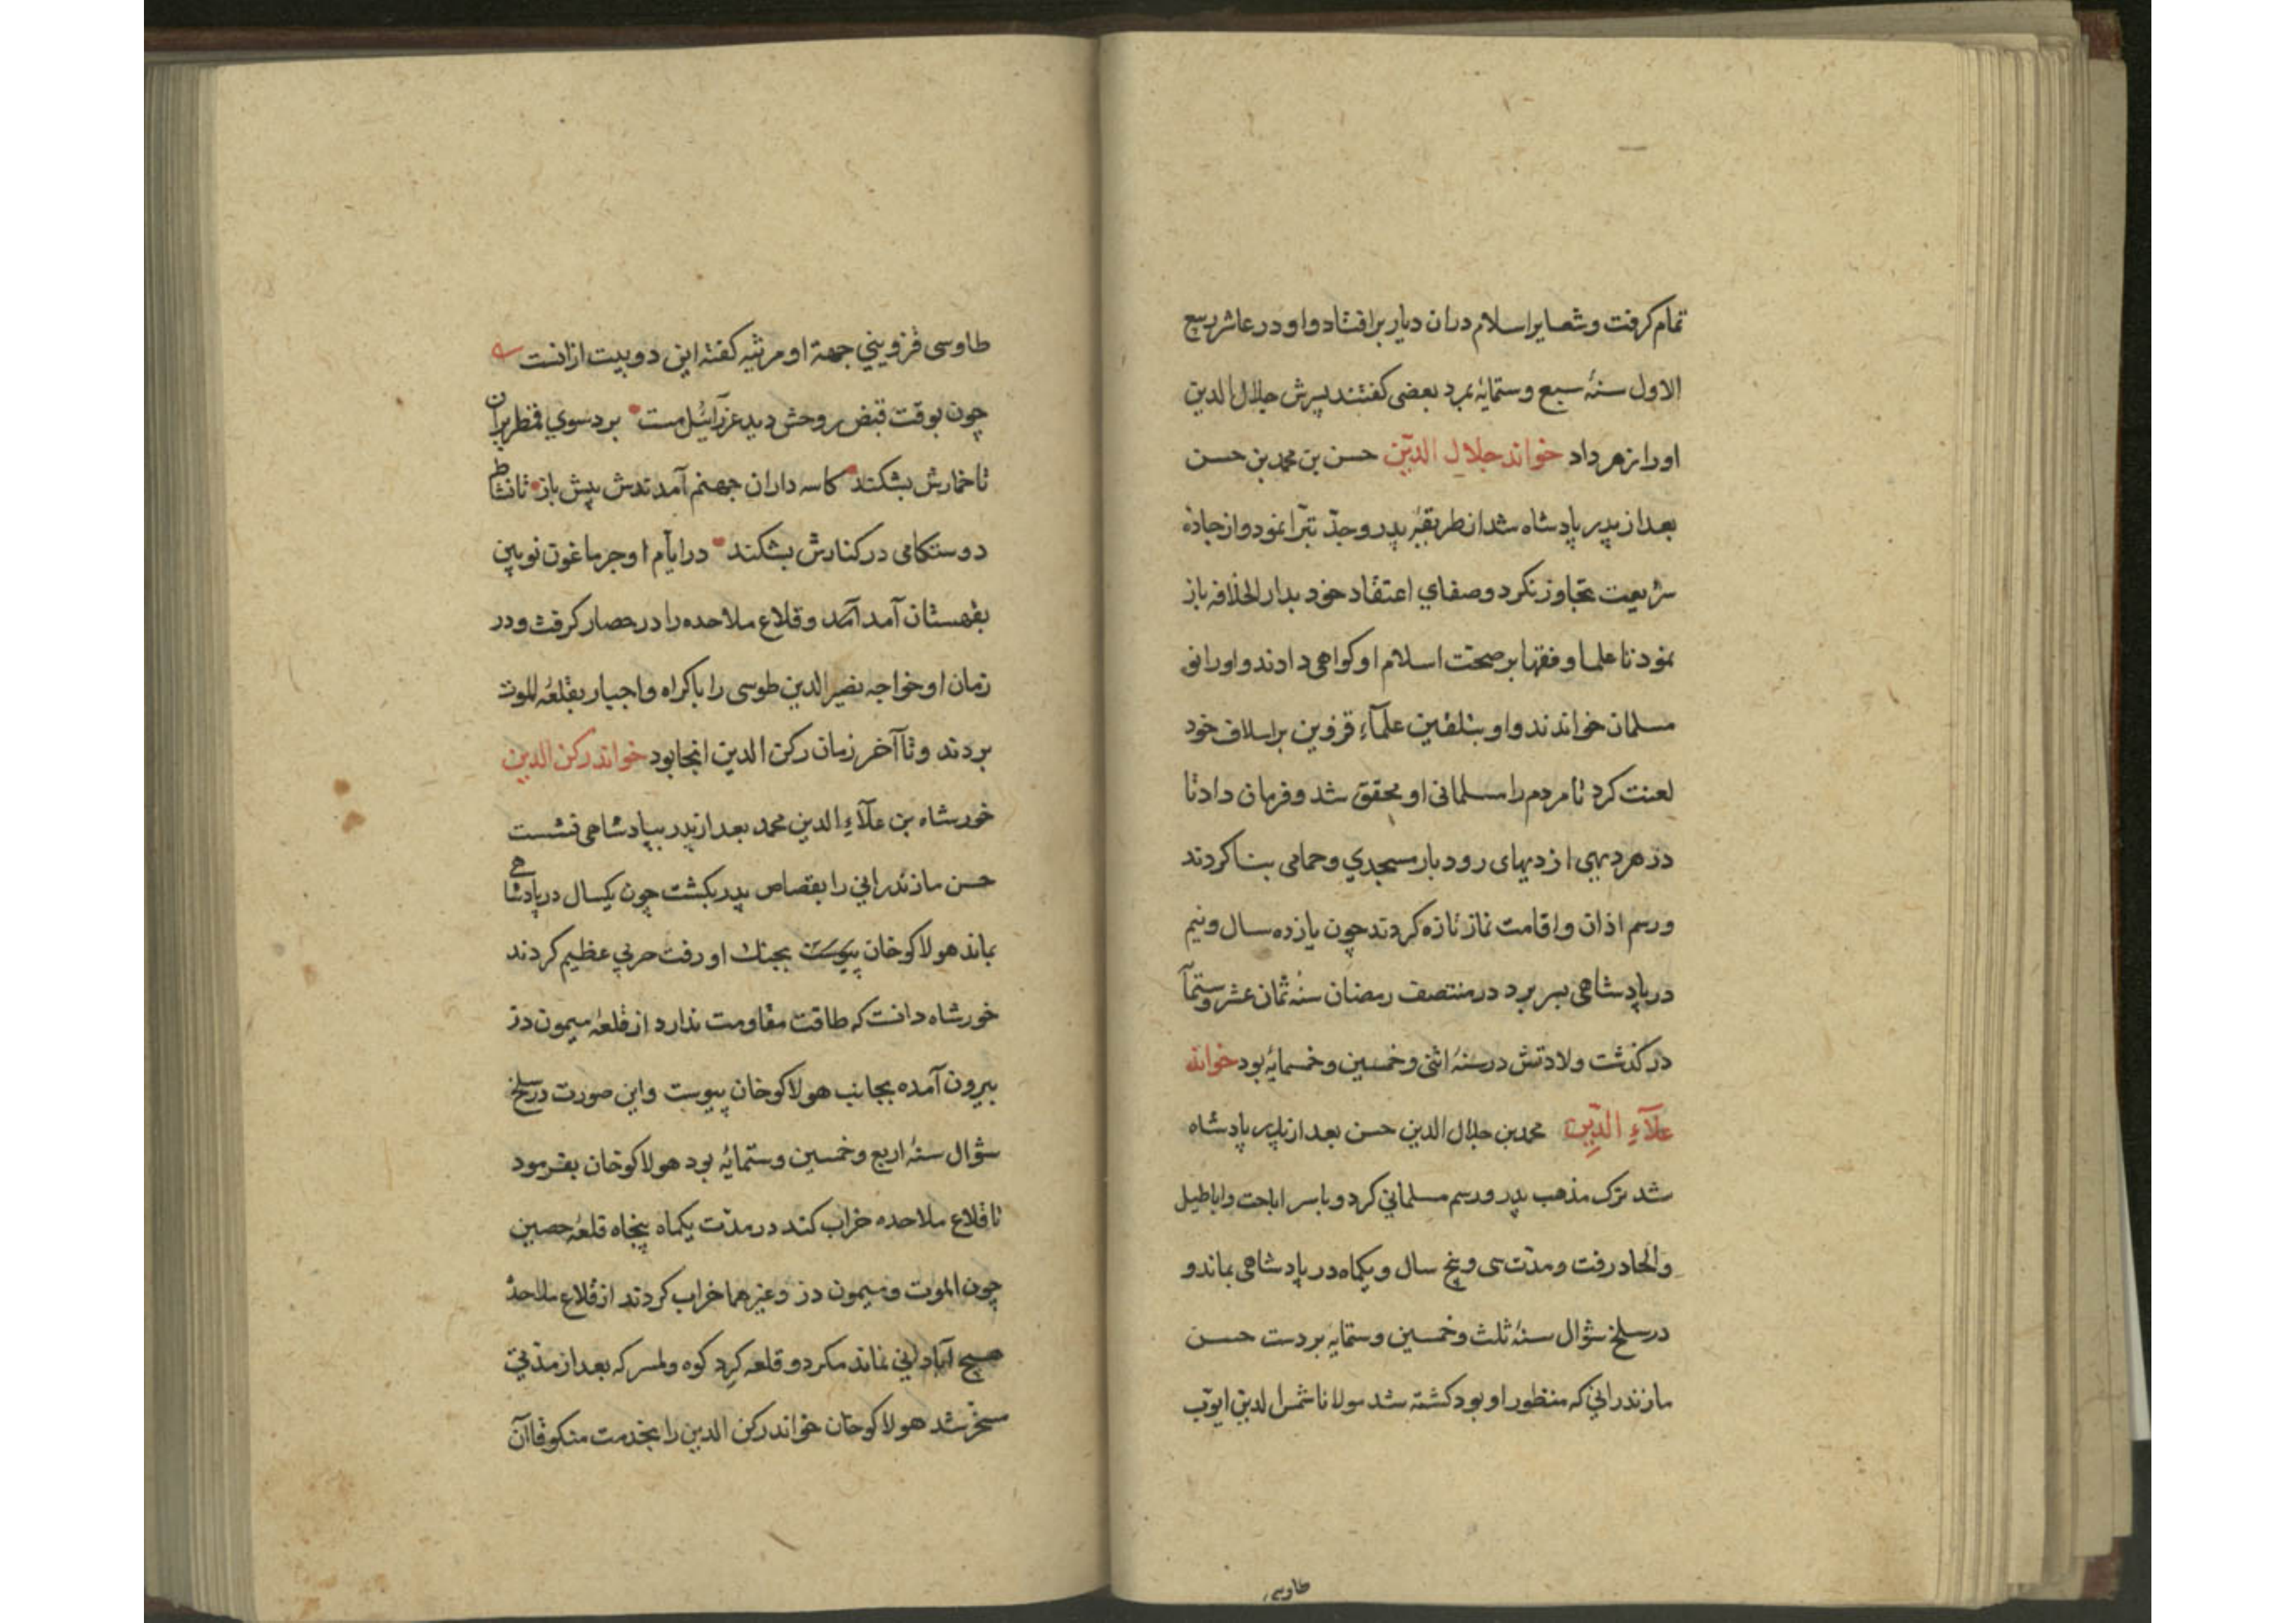 تمام کرفت و شعایر اسلام دران دیار برافتاد و او در عاشر ربیع
الاول سنهٔ سبع و ستمایهٔ بمرد بعضی کفتند پسرش جلال الدین
او را زهر داد خواند جلال الدّین حسن بن محمد بن حسن
بعد از پدر پادشاه شد از طریقهٔ پدر و جدّ تبرّا نمود و از جادهٔ
شریعت تجاوز نکرد و صفای اعتقاد خود بدار الخلافه باز
نمود تا علما و فقها بر صحت اسلام او کواهی دادند و او را نو
مسلمان خواندند و او بتلقین علمآء قزوین بر اسلاف خود
لعنت کرد تا مردم را مسلمانی او محقق شد و فرمان داد تا
در هر دیهی از دیهای رودبار مسجدی و حمامی بنا کردند
و رسم اذان و اقامت نماز تازه کردند چون یازده سال و نیم
در پادشاهی بسر برد در منتصف رمضان سنهٔ ثمان عشر و ستمآ
در کذشت ولادتش در سنهٔ اثنی و خمسین و خمسمایهٔ بود خواند
علآء الدّین محمد بن جلال الدین حسن بعد از پدر پادشاه
شد ترک مذهب پدر و رسم مسلمانی کرد و با سر اباحت و اباطیل
و الحاد رفت و مدّت سی و پنج سال و یکماه در پادشاهی بماند و
در سلخ شوّال سنهٔ ثلث و خمسین و ستمایهٔ بر دست حسن
مازندرانی که منظور او بود کشته شد مولانا شمس الدین ایوّب
طاوسی
طاوسی قزوینی جهة او مرثیه کفته این دو بیت ازانست
چون بوقت قبض روحش دید عزرآئیل مست برد سوی قمطریران
تا خمارش بشکند کاسه داران جهنم آمدندش پیش باز تا نشا
دوستکامی در کنارش بشکند در ایّام او جرماغون نویین
بقهستان آمد آمد و قلاع ملاحده را در حصار کرفت و در
زمان او خواجه نصیر الدین طوسی را باکراه و اجبار بقلعهٔ الموت
بردند و تا آخر زمان رکن الدین انجا بود خواند رکن الدین
خورشاه بن علآء الدین محمد بعد از پدر بپادشاهی نشست
حسن مازندرانی را بقصاص پدر بکشت چون یکسال در پادشاهی
بماند هولاکوخان پیوست بجنک او رفت حربی عظیم کردند
خورشاه دانست که طاقت مقاومت ندارد از قلعهٔ میمون دز
بیرون آمده بجانب هولاکوخان پیوست و این صورت در سلخ
شوّال سنهٔ اربع و خمسین و ستمایهٔ بود هولاکوخان بفرمود
تا قلاع ملاحده خراب کند در مدّت یکماه پنجاه قلعهٔ حصین
چون الموت و میمون دز و غیرهما خراب کردند از قلاع ملاحدهٔ
هیچ آبادانی نماند مکر دو قلعه کرد کوه و لمسر که بعد از مدّتی
مسخر شد هولاکوخان خواند رکن الدین را بخدمت منکوقاآن